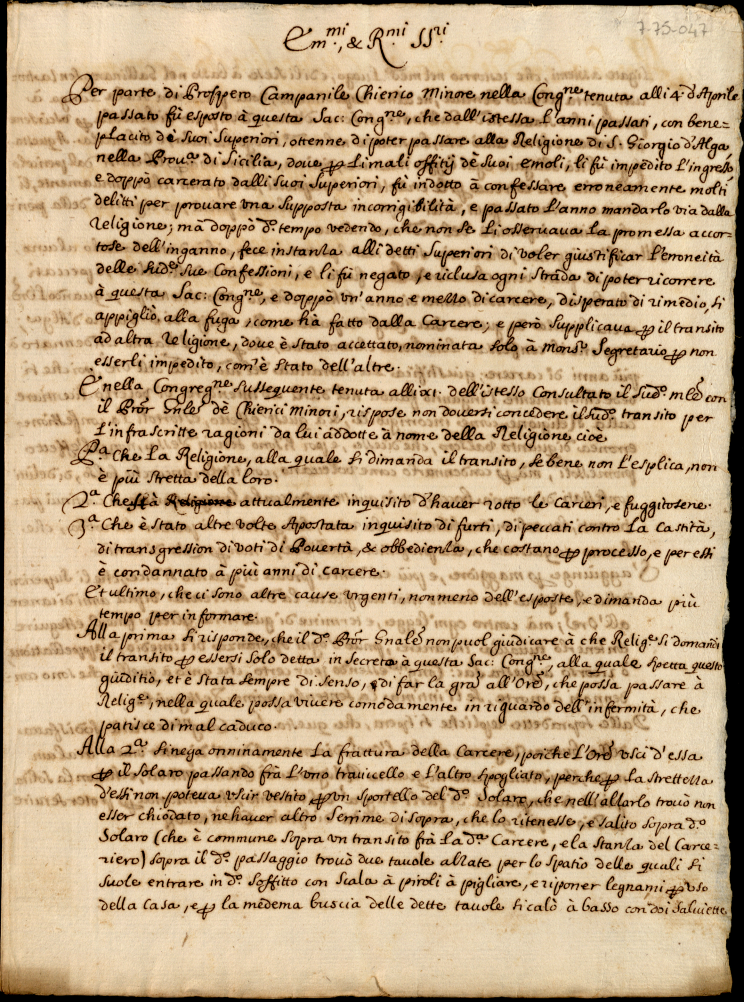 7-75-047
Em.mi, & R.mi SS.ri
Per parte di Prospero Campanile Chierico Minore nella Cong.ne tenuta alli 4. d'Aprile
passato fù esposto à questa Sac: Cong.ne, che dall'istessa l'anni passati, con bene=
placito de suoi Superiori, ottenne di poter passare alla Religione di S. Giorgio d'Alga
nella Prou.a di Sicilia, doue per li mali offitij de suoi emoli, li fù impedito l'ingresso
e doppò carcerato dalli suoi Superiori, fù indotto à confessare erroneamente molti
delitti per prouare vna supposta incorrigibilità, e passato l'anno mandarlo via dalla
Religione; mà doppò d.o tempo vedendo, che non se li osseruaua la promessa accor=
tose dell'inganno, fece instanza alli detti Superiori di voler giustificar l'erroneità
delle sud.e sue Confessioni, e li fù negato, e riclusa ogni strada di poter ricorrere
à questa Sac: Cong.ne, e doppò vn'anno e mezzo di carcere, disperato di rimedio, si
appigliò, alla fuga, come hà fatto dalla Carcere; e però supplicaua per il transito
ad altra Religione, doue è stato accettato, nominata solo à Mons.r Segretario per non
esserli impedito, com'è stato dell'altre.
E nella Congreg.ne susseguente tenuta alli xi. dell'istesso Consultato il sud.o con
il Pror Gnle dè Chierici Minori, rispose non douersi concedere il sud.o transito per
l'infrascritte ragioni da lui addotte à nome della Religione cioè
P.a Che la Religione, alla quale si dimanda il transito, se bene non l'esplica, non
è più stretta della loro.
2.a Che stà attualmente inquisito d'hauer rotto le Carceri, e fuggitosene.
3.a Che è stato altre volte Apostata inquisito di furti, di peccati contro la Castità,
di transgression di voti di Pouertà, & obbedienza, che costano per processo, e per essi
è condannato à più anni di carcere.
Et ultimo, che ci sono altre cause vrgenti, non meno dell'esposte, e dimanda più
tempo per informare.
Alla prima si risponde, che il d.o Pror Gnale non puol giudicare à che Relig.e si domandi
il transito per essersi solo detta in secreto à questa Sac: Cong.ne, alla quale spetta questo
giuditio, et è stata sempre di senso, di far la gra all'Ore, che possa passare à
Relig.e, nella quale possa viuere comodamente in riguardo dell'infermità, che
patisce di mal caduco.
Alla 2.a si niega onninamente la frattura della Carcere, poiche l'Ore vsci d'essa
per il solaro passando frà l'vno trauicello e l'altro spogliato, perche per la strettezza
d'essi non poteua vscir vestito per vn sportello del d.o Solaro, che nell'alzarlo trouò non
esser chiodato, ne hauer altro serrime di sopra, che lo ritenesse, e salito sopra d.o
Solaro (che è commune sopra vn transito frà la d.a Carcere, e la stanza del Carce=
riero) sopra il d.o passaggio trouò due tauole alzate per lo spatio delle quali si
suole entrare in d.o soffitto con scala à piroli à pigliare, e riponer legnami per vso
della casa, e per la medema buscia delle dette tauole si calò à basso con doi saluiette